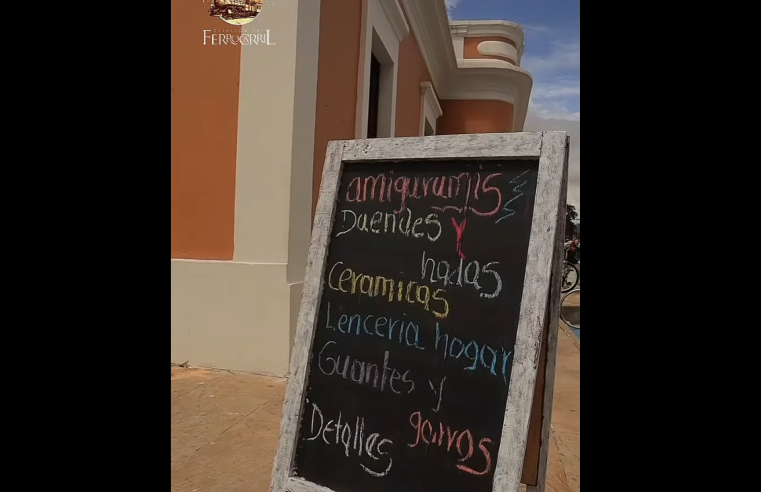 FERROCARRIL
amigurumis
Duendes y
hadas
Ceramicas
Lenceria hogar
Guantes y
gorros
Detalles